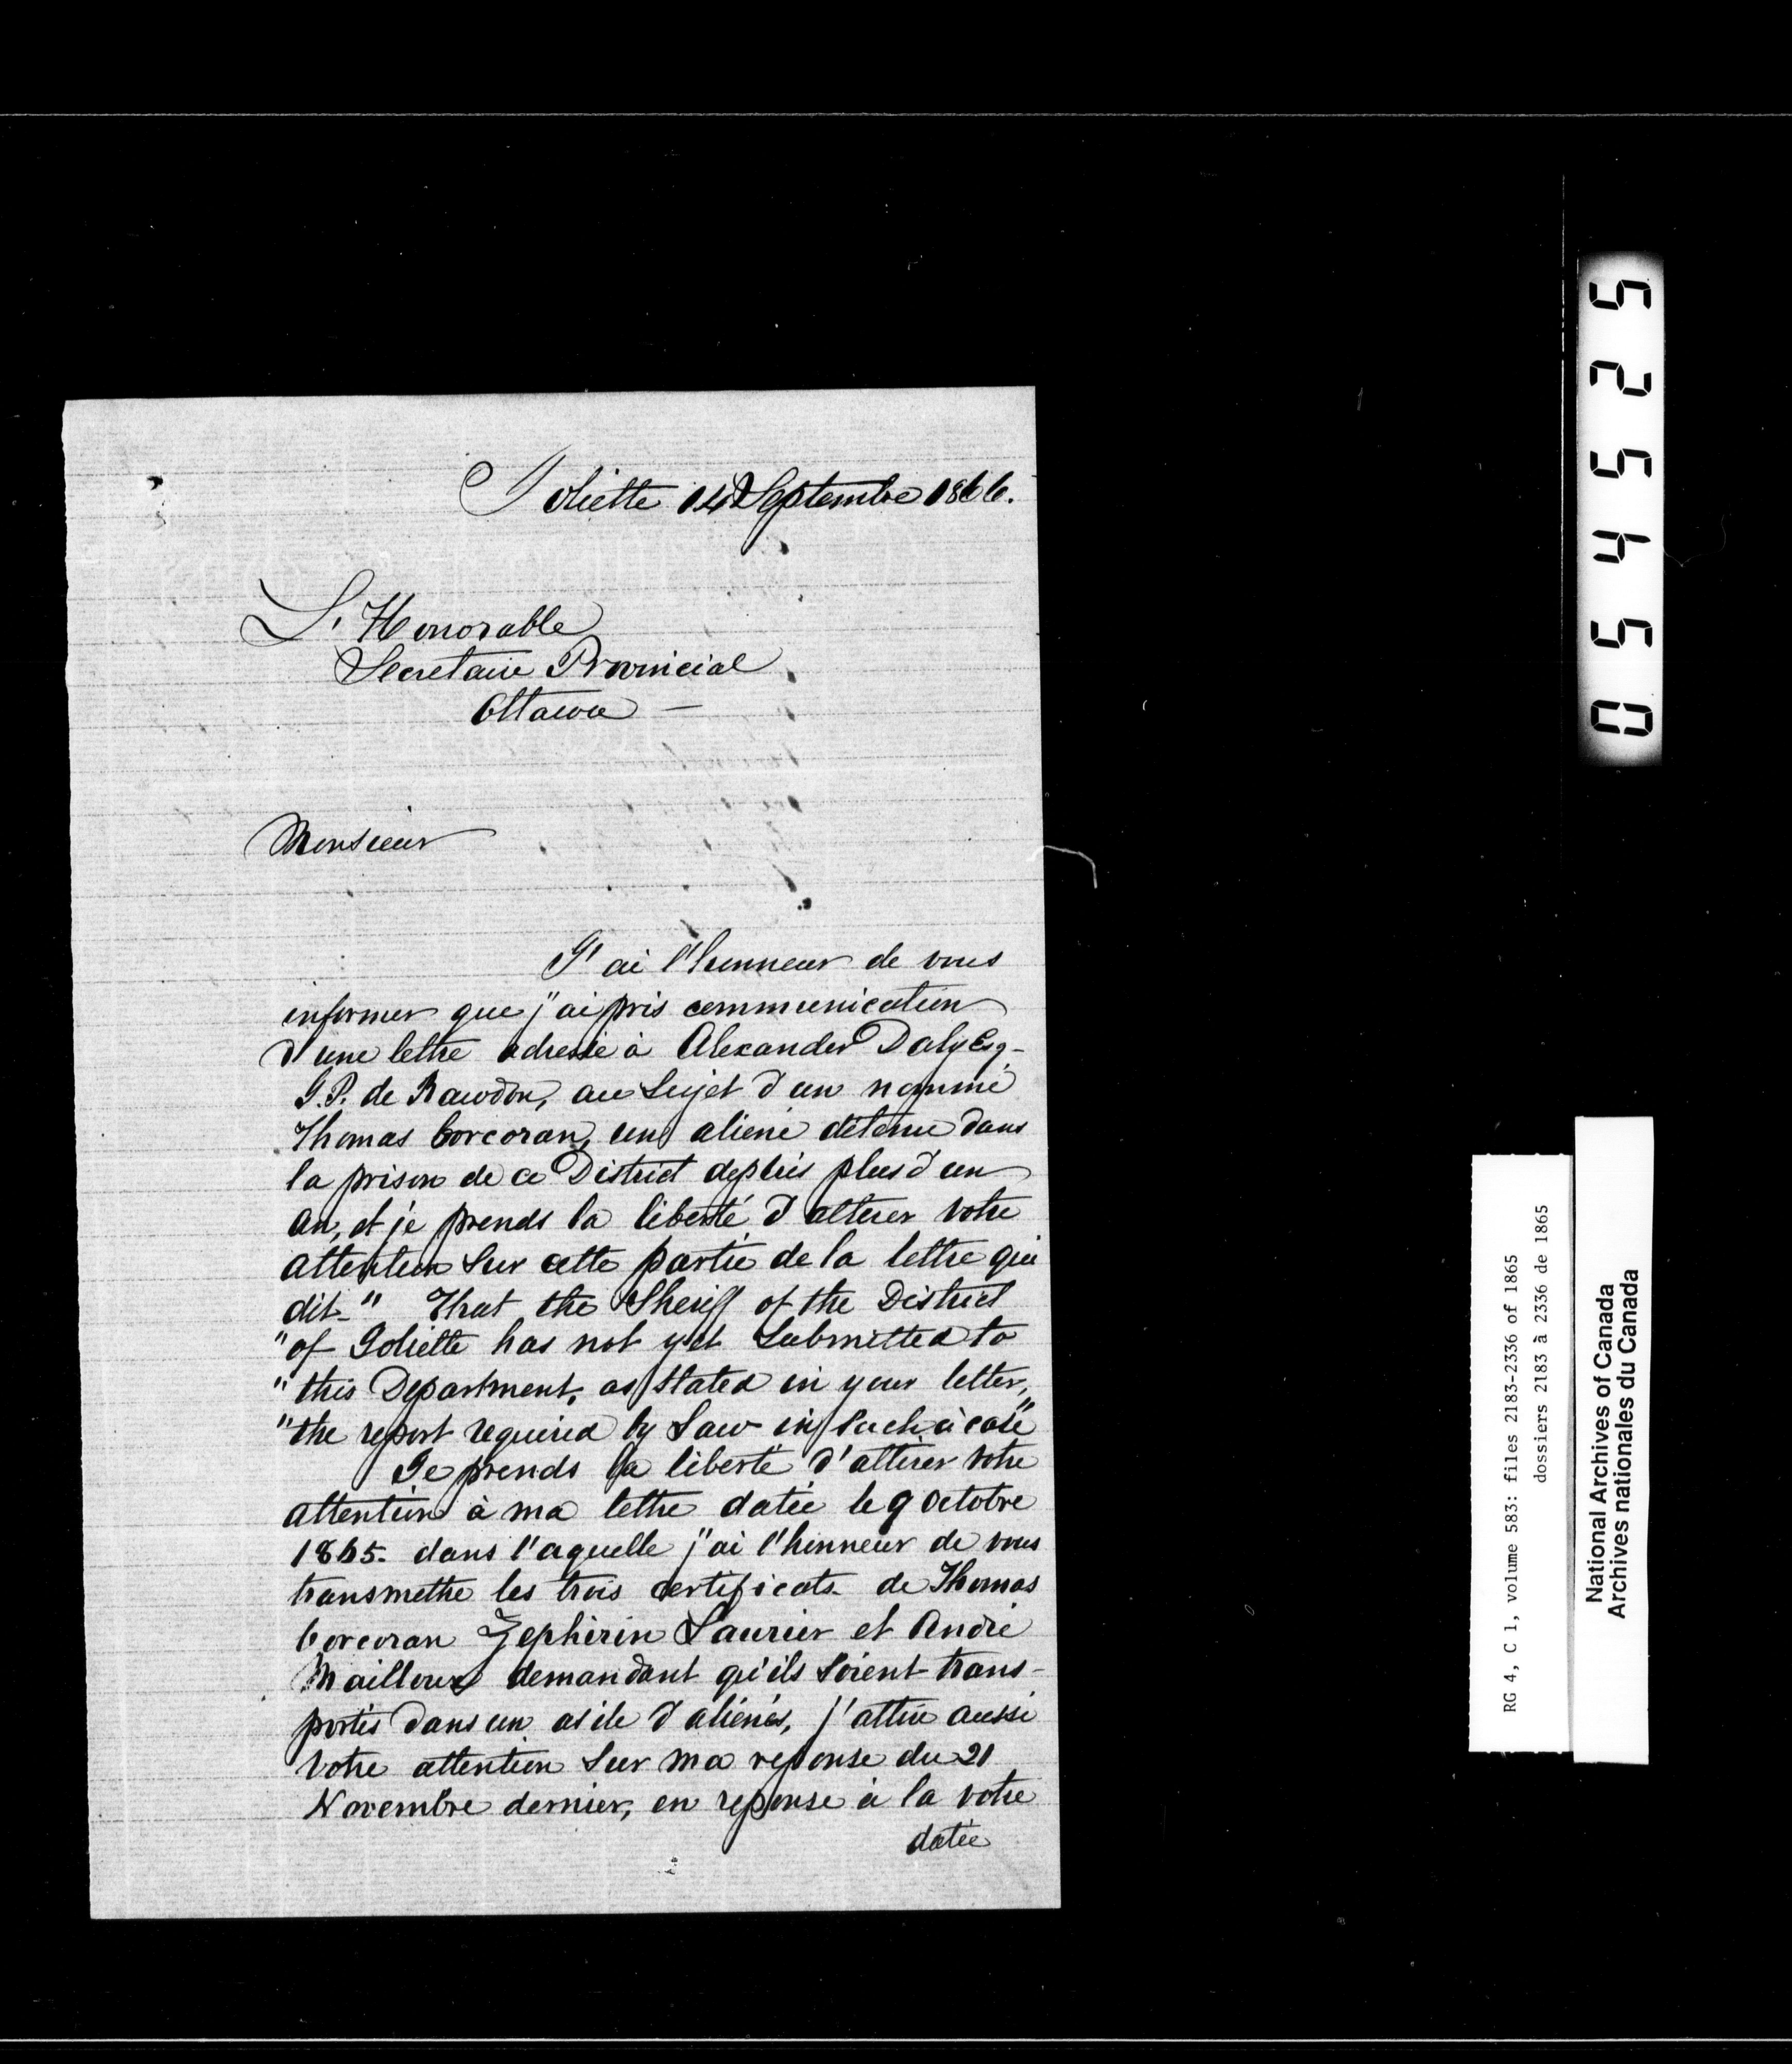 Joliette 14 Septembre 1866.
L'Honorable
Secretaire Provincial
Ottawa —
Monsieur
J'ai l'honneur de vous
informer que j'ai pris communication
d'une lettre adressé à Alexander Daly Esq-
J.P. de Rawdon, au Sujet d'un nommé
Thomas Corcoran, un aliené détenu dans
la prison de ce District depuis plus d'un
an, et je prends la liberté d'attirer votre
attention Sur cette partie de la lettre qui
dit- " That the Sheriff of the District
" of Joliette has not yet Submitted to
" this Department, as Stated in your letter,
" the report required by Law in Such a case"
Je prends la liberté d'attirer votre
attention à ma lettre datée le 9 Octobre
1865- dans l'aquelle j'ai l'honneur de vous
transmettre les trois certificats de Thomas
Corcoran Zephirin Laurier et André
Mailloux demandant qu'ils Soient trans-
portés dans un asile d'aliénés, j'attire aussi
votre attention Sur ma reponse du 21
Novembre dernier, en reponse à la votre
datée
0 5 4 5 2 5
RG 4, C 1, volume 583: files 2183-2336 of 1865
dossiers 2183 à 2336 de 1865
National Archives of Canada
Archives nationales du Canada